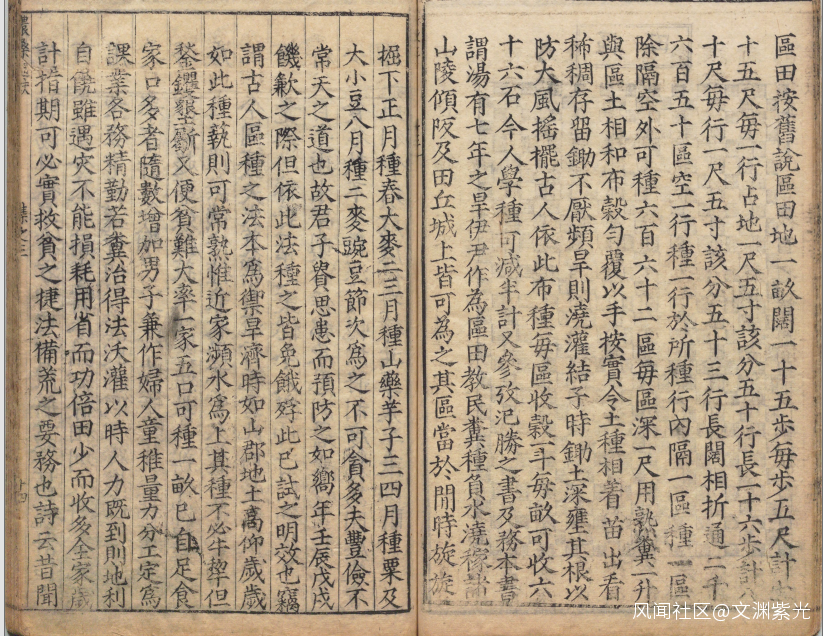 區田按舊說區田地一畝闊一十五步每步五尺計
十五尺每一行占地一尺五寸該分五十行長一十六步計八
十尺每行一尺五寸該分五十三行長闊相折通二千
六百五十區空一行種一行於所種行內隔一區種一區
除隔空外可種六百六十二區每區深一尺用熟糞一升
與區土相和布穀勻覆以手按實令土種相着苗出看
稀稠存留鋤不厭頻旱則澆灌結子時鋤土深壅其根以
防大風搖擺古人依此布種每區收穀一斗每畝可收六
十六石今人學種可減半計又參攷氾勝之書及務本書
謂湯有七年之旱伊尹作為區田教民糞種負水澆稼諸
山陵傾阪及田丘城上皆可為之其區當於閒時旋旋
掘下正月種春大麥二三月種山藥芋子三四月種粟及
大小豆八月種二麥豌豆節次爲之不可貪多夫豐儉不
常天之道也故君子貴思患而預防之如嚮年壬辰戊戌
饑歉之際但依此法種之皆免餓殍此已試之明效也竊
謂古人區種之法本為禦旱濟時如山郡地土高仰歲歲
如此種蓺則可常熟惟近家瀕水爲上其種不必牛犂但
鍫钁墾斸又便貧難大率一家五口可種一畝已自足食
家口多者隨數增加男子兼作婦人童稚量力分工定爲
課業各務精勤若糞治得法沃灌以時人力既到則地利
自饒雖遇灾不能損耗用省而功倍田少而收多全家歲
計指期可必實救貧之捷法備荒之要務也詩云昔聞
風闻社区@文渊紫光